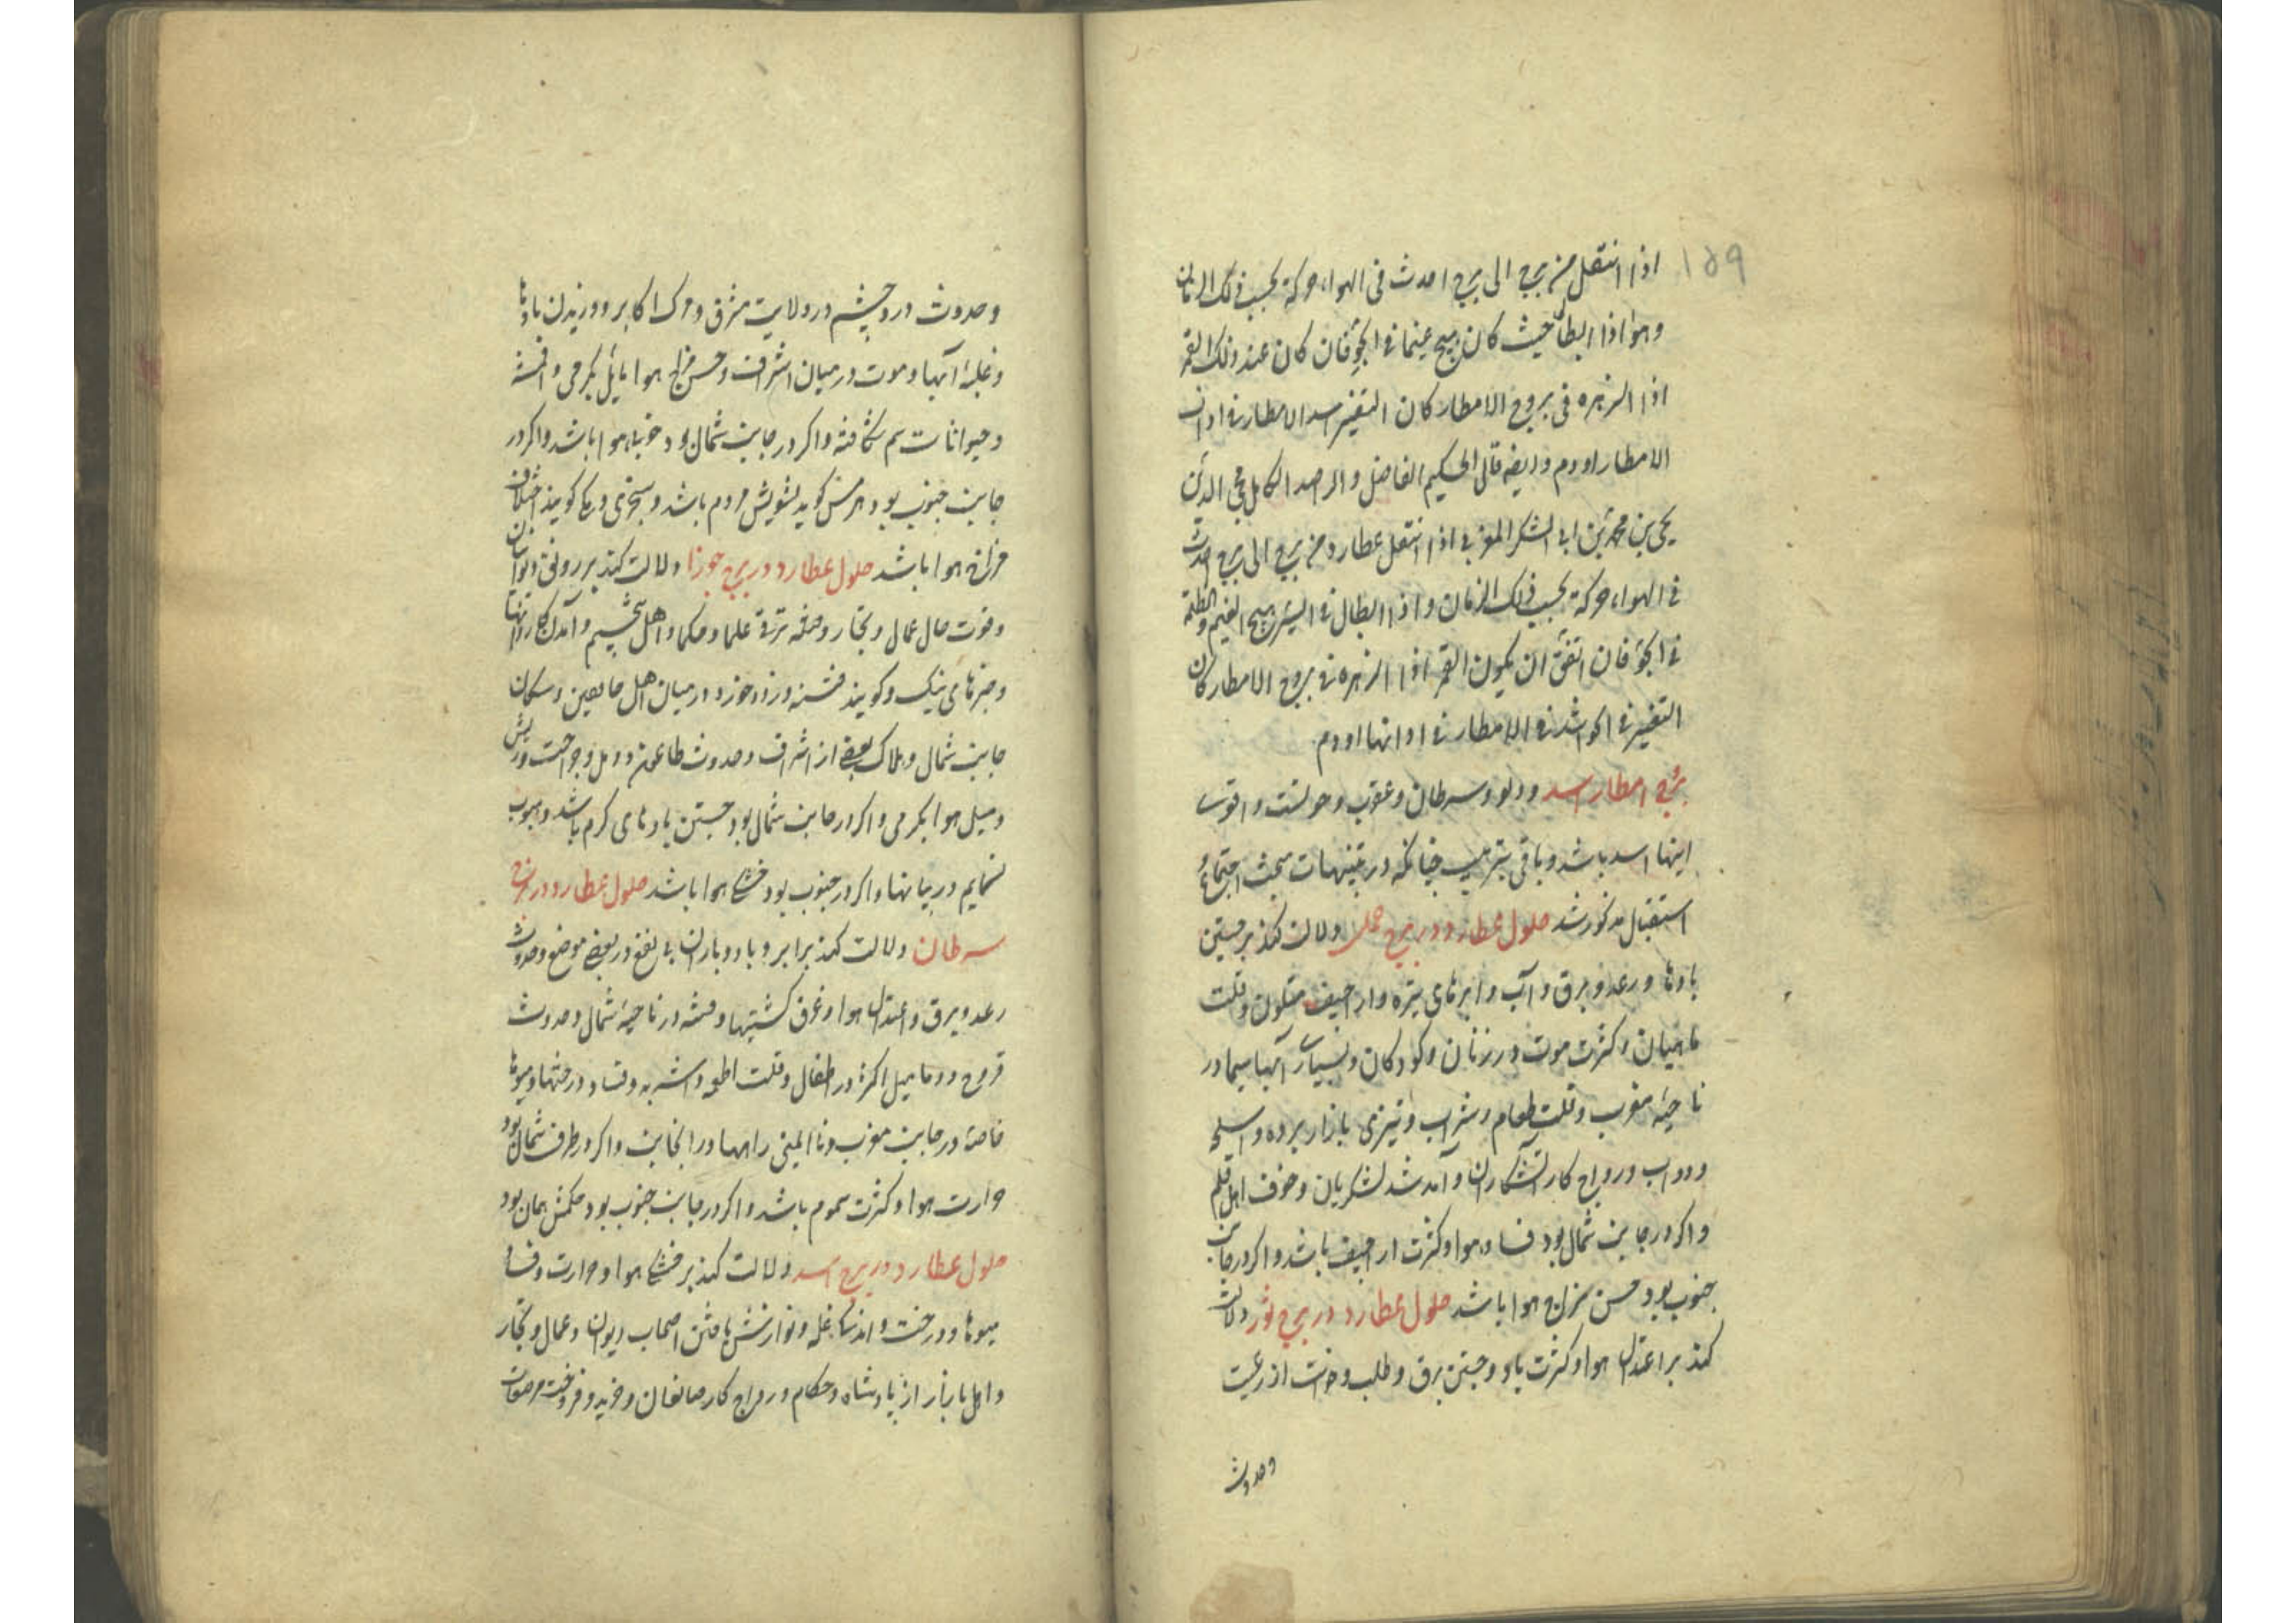 ۱۵۹
اذا انتقل من برج الی برج احدث فی الهواء حرکة بحسب ذلک الزمان
وهو اذا ابطأ حیث کان یهیج غیما فی الجو فان کان عند ذلک القمر
اذا الزهره فی بروج الامطار کان التغیر اسد الامطار فی اوان
الامطار اودم وایضه قال الحکیم الفاضل والراصد الکامل محی الدین
یحیی بن محمد بن ابی الشکر المغربی اذا انتقل عطارد من برج الی برج احدث
فی الهواء حرکة بحسب ذلک الزمان واذا ابطال فی السیر یهیج الغیم والظلمة
فی الجو فان اتفق ان یکون القمر اذا الزهره فی بروج الامطار کان
التغییر فی الجو اشد فی الامطار فی اوانها اودم
بروج امطار اسد ودلو وسرطان وعقرب وحوتست واقوی
اینها اسد باشد وباقی بترتیب چنانکه در تنبیهات مبحث اجتماع و
استقبال مذکور شد حلول عطارد در برج حمل دلالت کند بر جستن
بادها ورعد وبرق وآب وابرهای تیره واراجیف متلون وقلت
ماهیان وکثرت موت در زنان وکودکان وبسیاری آبها سیما در
ناحیه مغرب وقلت طعام وشراب وتیزی بازار برده واسلحه
ودواب ورواج کار آتشکاران وآمد شد لشکریان وخوف اهل قلم
واکر در جانب شمال بود فساد هوا وکثرت اراجیف باشد واکر در جانب
جنوب بود حسن مزاج هوا باشد حلول عطارد در برج ثور دلالت
کند بر اعتدال هوا وکثرت باد وجستن برق وطلب وخواست از رعیت
وحدوث
وحدوث درد چشم در ولایت مشرق ومرک اکابر ووزیدن بادها
وغلبۀ آبها وموت در میان اشراف وحسن مزاج هوا مایل بکرمی وافسنه
وحیوانات سم شکافته واکر در جانب شمال بود خوبی هوا باشد واکر در
جانب جنوب بود هرمس کوید تشویش مردم باشد وسختی وعکا کویند اختلاف
مزاج هوا باشد حلول عطارد در برج جوزا دلالت کند بر رونق دیوانیان
وقوت حال عمال وتجار وحرفه ترقی علما وحکما واهل تنجیم وآمدن کاروانها
وخبرهای نیک وکویند فتنه وزد وخورد در میان اهل مابعین وسکان
جانب شمال وهلاک بعضی از اشراف وحدوث طاعون ودمل وجراحت وریش
ومیل هوا بکرمی واکر در جانب شمال بود جستن بادهای کرم باشد وهبوب
سمایم در بیابانها واکر در جنوب بود خشکی هوا باشد حلول عطارد در برج
سرطان دلالت کند بر ابر وباد وباران بی نفع در بعضی موضع وحدوث
رعد وبرق واعتدال هوا وغرق کشتیها وفتنه در ناحیۀ شمال وحدوث
قروح ودمامیل اکثر در اطفال وقلت اطعمه واشربه وفساد درختها ومیوها
خاصه در جانب مغرب وناایمنی راهها در انجانب واکر در طرف شمال بود
حرارت هوا وکثرت سموم باشد واکر در جانب جنوب بود حکمش همان بود
حلول عطارد در برج اسد دلالت کند بر خشکی هوا وحرارت وفساد
میوها ودرخت واندکی غله ونوازش یافتن اصحاب دیوان وعمال وتجار
واهل بازار از پادشاه وحکام ورواج کار صانعان وخرید وفروخت مرصعات